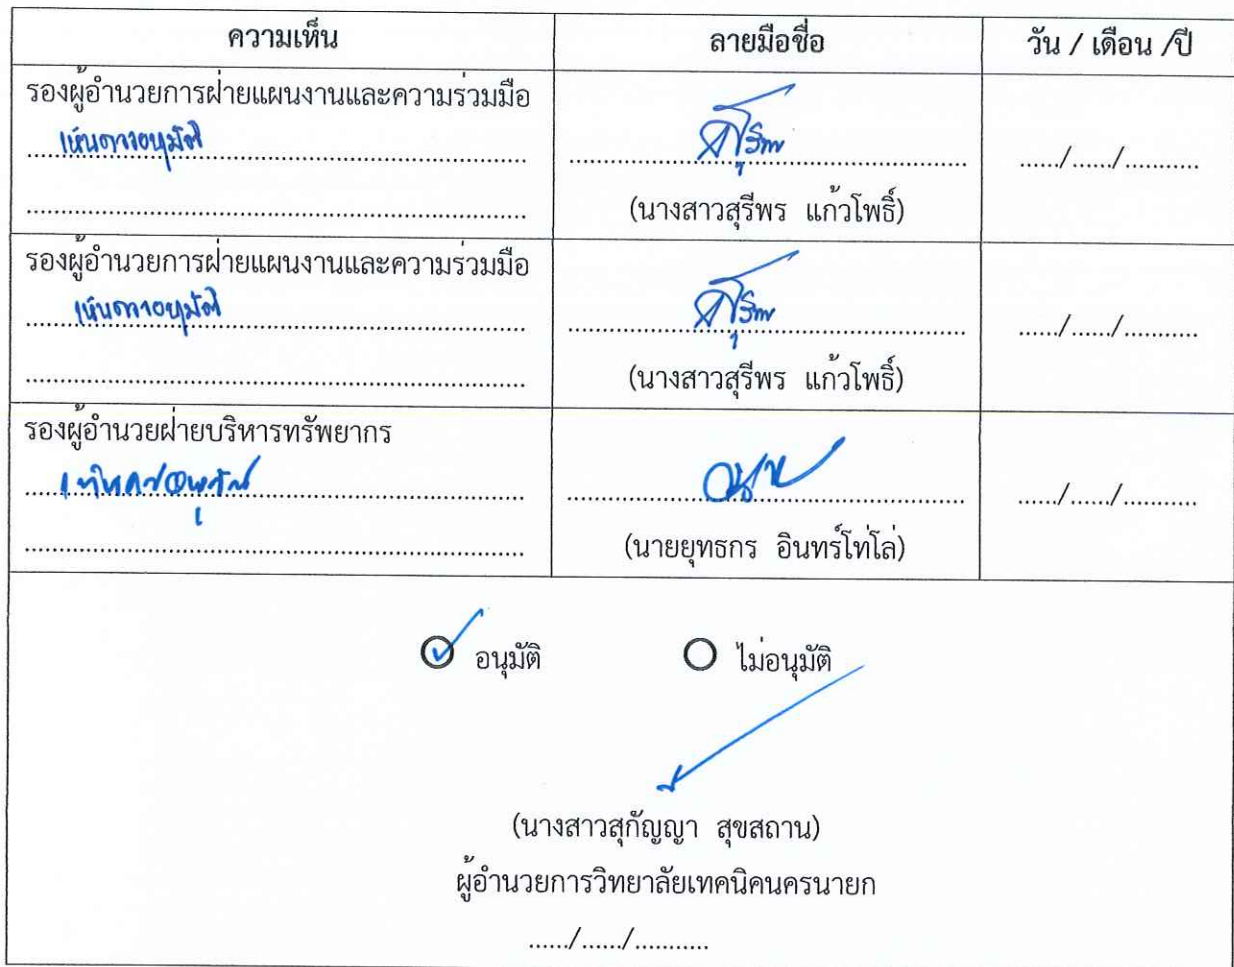 ความเห็น ลายมือชื่อ วัน / เดือน /ปี
รองผู้อำนวยการฝ่ายแผนงานและความร่วมมือ
เห็นควรอนุมัติ ...../....../...........
(นางสาวสุรีพร แก้วโพธิ์)
รองผู้อำนวยการฝ่ายแผนงานและความร่วมมือ
เห็นควรอนุมัติ ...../....../...........
(นางสาวสุรีพร แก้วโพธิ์)
รองผู้อำนวยฝ่ายบริหารทรัพยากร
...../....../...........
(นายยุทธกร อินทร์โท่โล่)
อนุมัติ ไม่อนุมัติ
(นางสาวสุกัญญา สุขสถาน)
ผู้อำนวยการวิทยาลัยเทคนิคนครนายก
....../....../...........